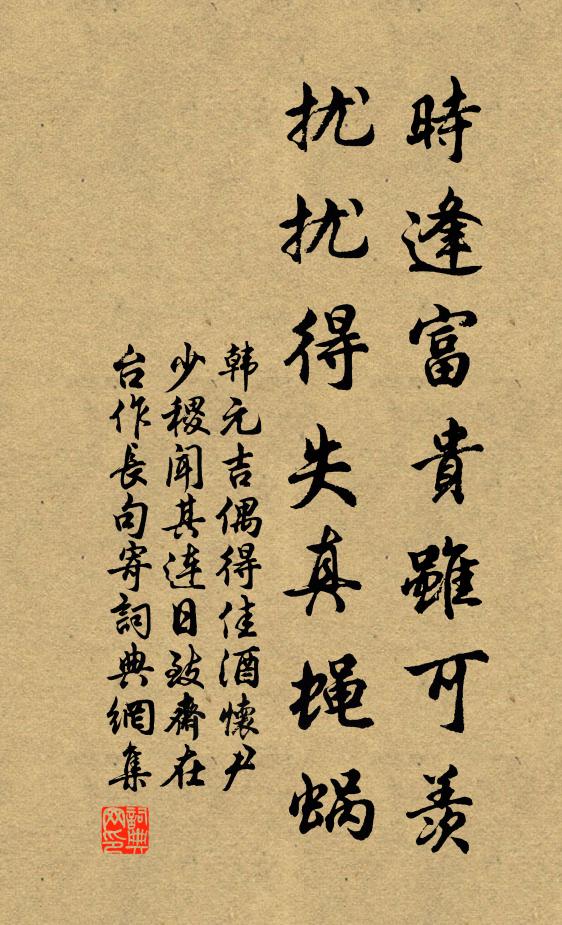 時逢富貴雖可羨
扰扰得失真蝇蜗
韩元吉偶得佳酒懷尹
少稷闻其连日致齋在
台作長句寄詞典網集
詞典网印